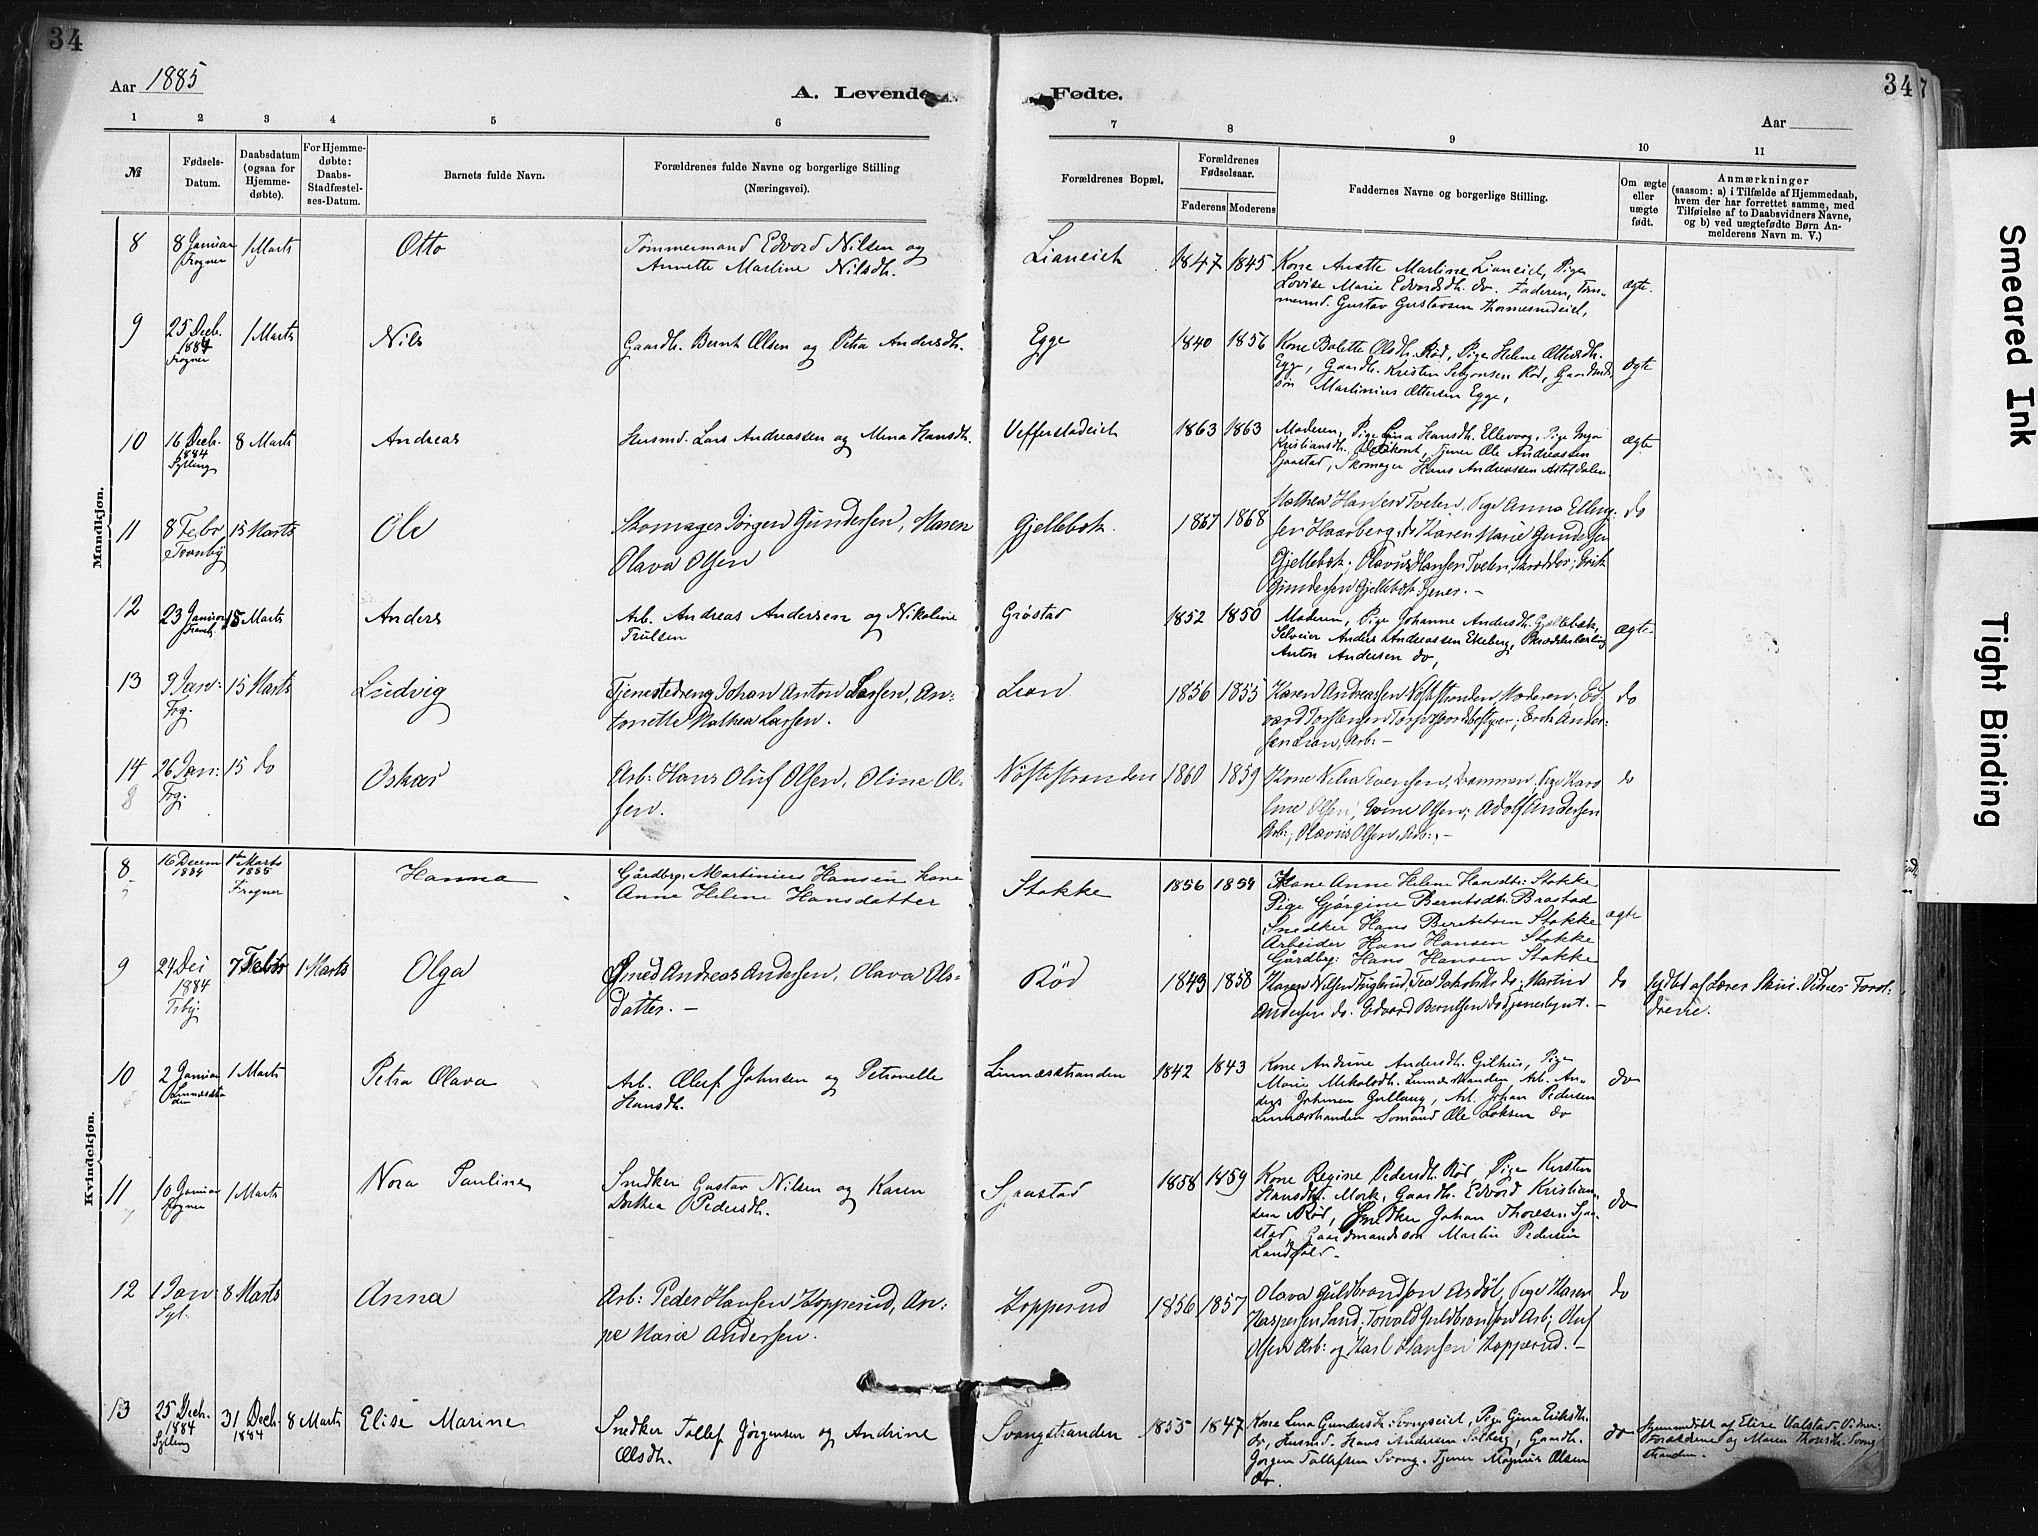 34
Aar 1885
A. Levende
Fødte.
34
7
Aar
1 2 3 4 5 6 7 8 9 10 11
№
Fødsels-Datum.
Daabsdatum (ogsaa for Hjemmedøbte).
For Hjemmedøbte: Daabs-Stadfæstelses-Datum.
Barnets fulde Navn.
Forældrenes fulde Navne og borgerlige Stilling
(Næringsvei).
Forældrenes Bopæl.
Forældrenes Fødselsaar.
Faderens Moderens
Faddernes Navne og borgerlige Stilling.
Om ægte eller uægte født.
Anmærkninger
(saasom: a) i Tilfælde af Hjemmedaab,
hvem der har forrettet samme, med
Tilføielse af to Daabsvidners Navne,
og b) ved uægtefødte Børn An-
melderens Navn m. V.)
Mandkjøn.
8 8 Januar Frogner 1 Marts Otto Tømmermand Edvord Nilsen og
Annette Martine Nilsdh. Lianeiet 1847 1845 Kone Anette Martine Lianeiet, Pige
Lovise Marie Edvardsdh. do. Faderen, Tøm-
mermd. Gustav Gustavsen ægte.
9 25 Decb. 1884 Frogner 1 Marts Nils Gaardb. Bernt Olsen og Petra Andersdh. Egge 1840 1856 Kone Bolette Olsdh. Rød, Pige Helene Ottersdh.
Egge, Gaardb. Kristen Rød, Gaardmds
søn Martinius Ottersen Egge, ægte
10 16 Decb. 1884 Sylling 8 Marts Andreas Husmd. Lars Andreassen og Mina Hansdh. Vefferstadeiet 1863 1863 Moderen, Pige Lina Hansdh. Ellevoog, Pige Inga
Kristiansdh. Tjener Ole Andreassen
Sjaastad, Skomager Hans Andreassen ægte
11 8 Febr Tranby 15 Marts Ole Skomager Jørgen Gundersen, Maren
Olava Olsen Gjellebæk 1867 1868 Mathea Hansen Tveten, Pige Anna Elling-
sen Haarberg, do Karen Marie Gundersen
Gjellebæk, Olavus Hansen Tveten, Skrædder, Erik
Gundersen Gjellebæk Tjener. – do
12 23 Januar Tranby 15 Marts Anders Arb. Andreas Andersen og Nikoline
Trulsen Grøstad 1852 1850 Moderen, Pige Johanne Andersdh. Gjellebæk,
Selveier Anders Andreassen Ekeberg,
Anton Andersen do, ægte
13 9 Jan: Frg. 15 Marts Ludvig Tjenestedreng Johan Anton Larsen, An-
tonette Mathea Larsen. Lian 1856 1855 Karen Andreassen Nøstestranden, Moderen, Ed-
vard Torstensen Ander-
sen Lian, Arb: – do
14 26 Jan: Frg: 15 do Oskar Arb: Hans Oluf Olsen, Oline Ol-
sen. Nøstestranden 1860 1859 Kone Evensen, Drammen, Pige Karo
line Olsen, Olsen, Adolf Andersen
Arb:, Olavus Olsen, Arb:, – do
8
Kvindekjøn.
8 16 Decem 1884 1ste Marts 1885 Frogner Hanna Gårdbr: Martinius Hansen kone
Anne Helene Hansdatter Stokke 1856 1854 Kone Anne Helene Hansdtr: Stokke
Pige Gjørgine Berntsdtr: Brastad
Snedker Hans Berntsen Stokke
Arbeider Hans Hansen Stokke
Gårdbr: Hans Hansen Stokke ægte
9 24 Dec 1884 Trby: 7 Febr 1 Marts Olga Smed Andreas Andersen, Olava Ols-
datter. – Rød 1849 1858 Karen Nilsen Fuglerud, Tea Jakobsdr do, Martin
Andersen do. Edvard Berntsen do Tjenere do Døbt af Lærer Skui. Vidner Foræl-
drene.
10 2 Januar Linnæsstranden 1 Marts Petra Olava Arb. Oluf Johnsen og Petronelle
Hansdh. Linnæsstranden 1842 1843 Kone Andrine Andersdh. Gilhus, Pige
Marie Mikalsdh. Linnæsstranden, Arb. An-
ders Johnsen Gullaug, Arb. Johan Pedersen
Linnæsstranden Sømand Ole do do
11 10 Januar Frogner 1 Marts Nora Pauline Snedker Gustav Nilsen og Karen
Dorthea Pedersdh. Sjaastad 1858 1859 Kone Regine Pedersdh. Rød, Pige Kirsten
Hansdh. Mork, Gaardb. Edvord Kristian-
sen Rød, Snedker Johan Thoresen Sjaa-
stad, Gaardmandssøn Martin Pedersen
Landfald. do
12 1 Jan: Syl. 8 Marts Anna Arb: Peder Hansen Kopperud, An-
ne Marie Andersen. Kopperud 1856 1857 Olava Guldbrandsen Asdøl, Pige Karen
Kaspersen Sand, Torvald Guldbrandsen Arb:, Oluf
Olsen Arb: og Karl Hansen Kopperud. – do
13 25 Decb. 1884 Sylling 31 Decb. 1884 8 Marts Elise Marine Snedker Tollef Jørgensen og Andrine
Olsdh. Svangstranden 1855 1847 Kone Lina Gundersdh. Svangseiet, Pige Gina Eriksdh.
do, Husmd. Hans Andersen Solberg, Gaardb.
Jørgen Tollefsen Svang, Tjener Magnus Olsen
do. do Hjemmedøbt af Elise Valstad. Vidner:
Forældrene og Maren Thorsdh. Svang
stranden.
Smeared Ink
Tight Binding